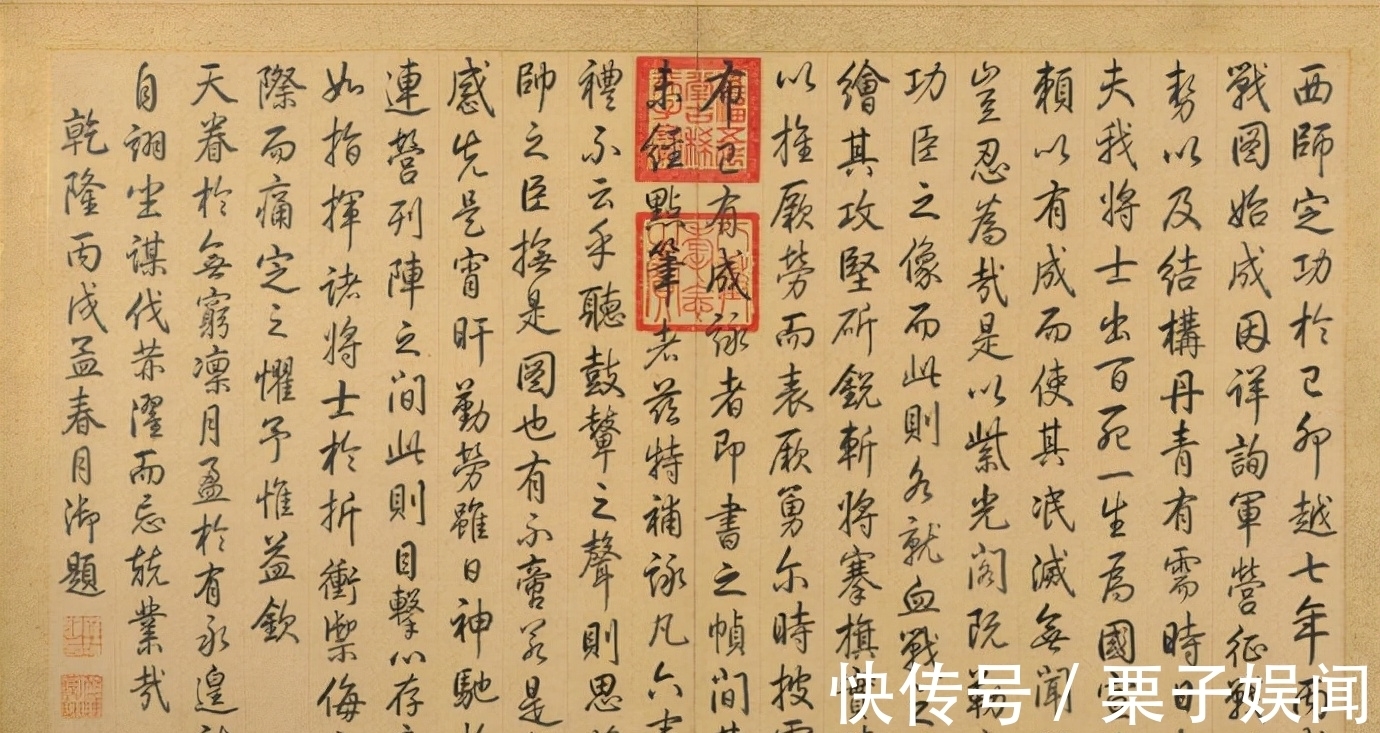 西師定功於己卯越七年而
戰圖始成因詳詢軍營征戰
勢以及結構丹青有需時日
夫我將士出百死一生為國宣
賴以有成而使其泯滅無聞
豈忍為哉是以紫光閣既勒
功臣之像而此則各就血戰之
繪其攻堅斫銳斬將搴旗實
以摧厥勞而表厥勇尓時披
布已有成詠者即書之幀間其
未經點筆者茲特補詠凡六
禮不云乎聽鼓鼙之聲則思
帥之臣撫是圖也有不啻若是
感先是宵旰勤勞雖日神馳
連營列陣之間此則目擊心存
如指揮諸將士於折衝禦侮
際而痛定之懼予惟益欽
天眷於無窮凜月盈於有永遑
自詡坐謀伐恭濯而忘兢業哉
乾隆丙戌孟春月御題
快传号/栗子娱闻